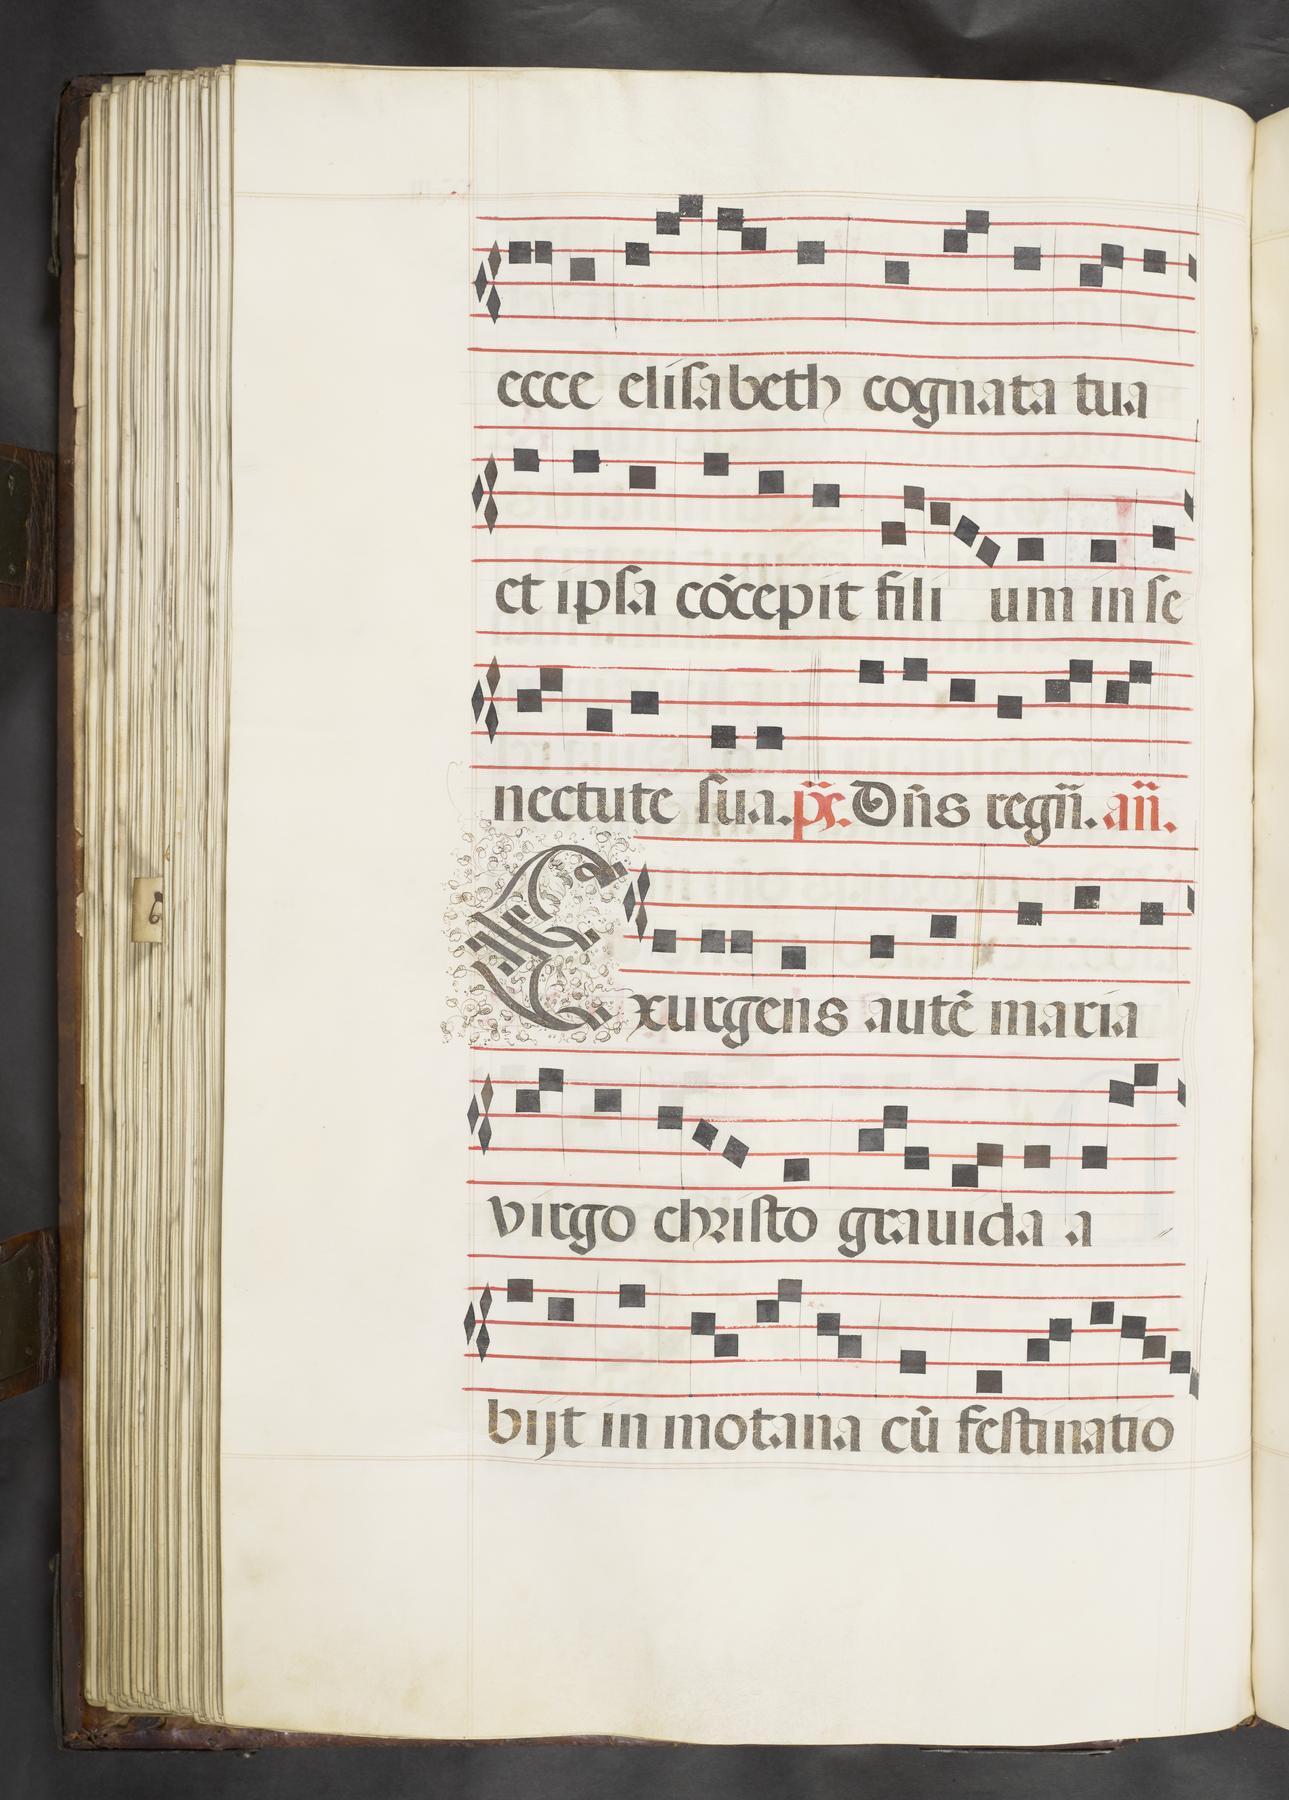 ecce elisabeth cognata tua
et ipsa cōcepit fili um in se
nectute sua. ps. Dn̄s regn̄. an̄.
Exurgens autē maria
virgo christo grauida a
bijt in motana cū festinatio